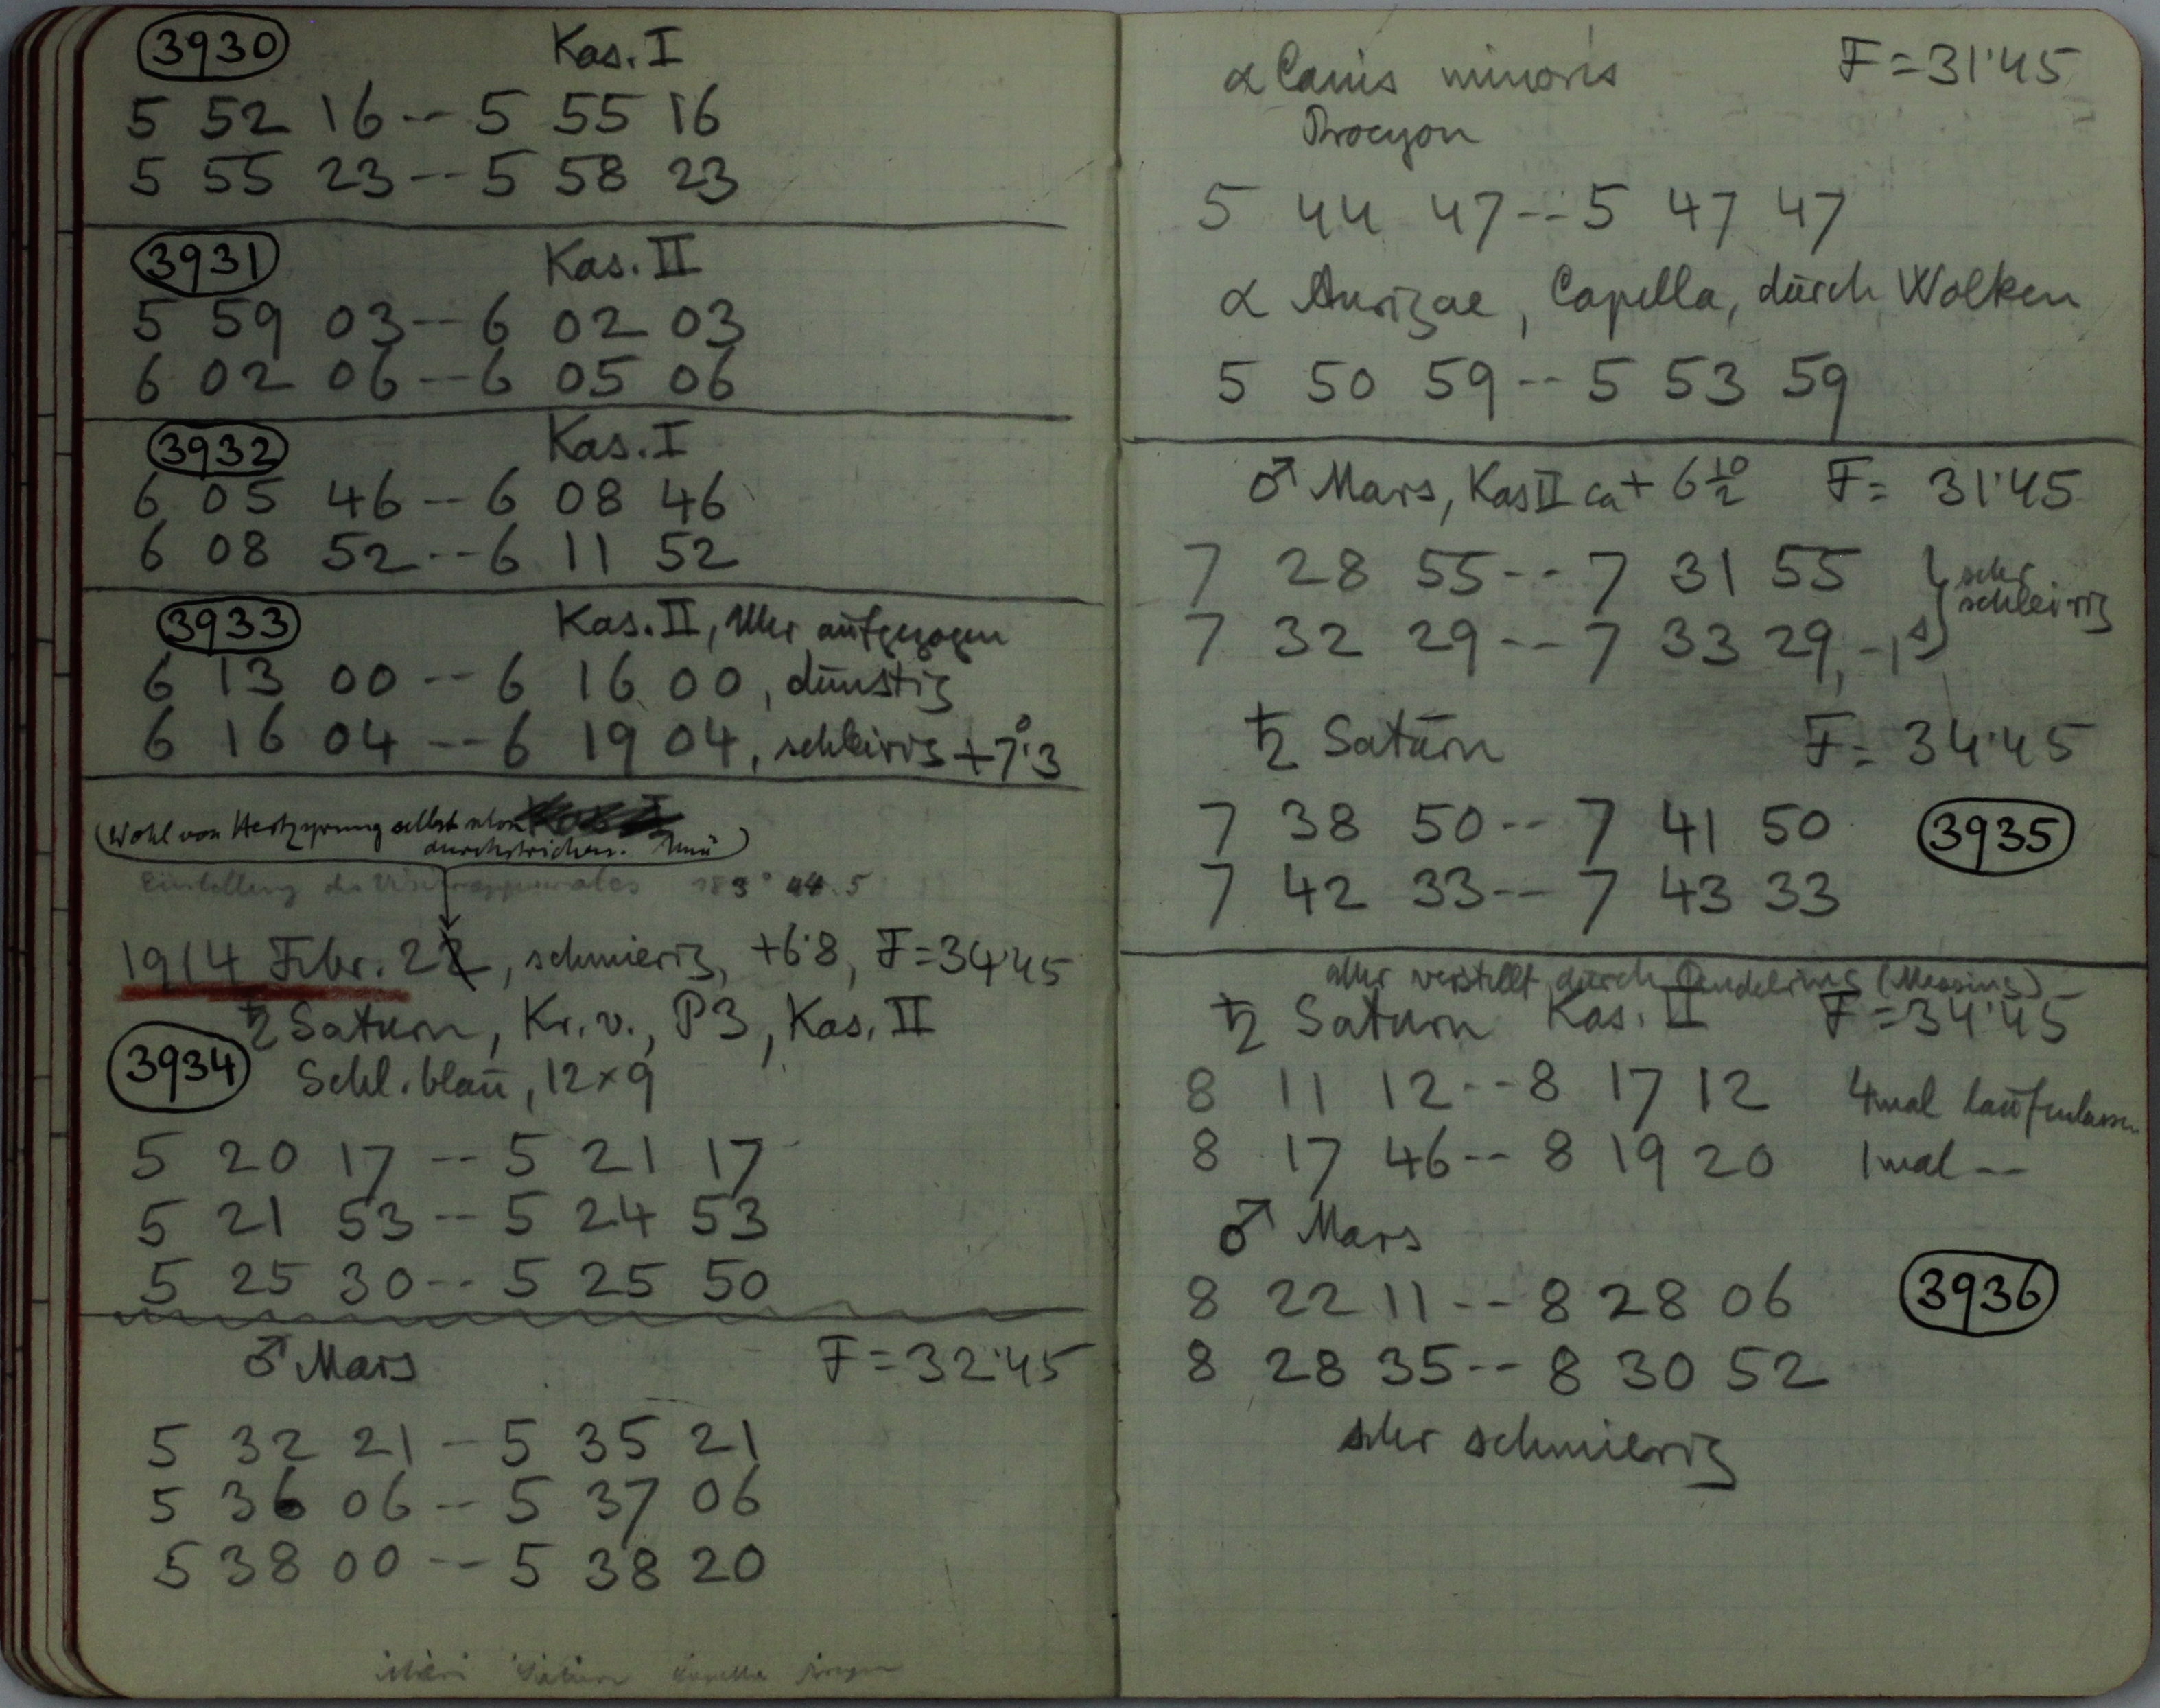 3930 Kas. I
5 52 16 -- 5 55 16
5 55 23 -- 5 58 23
3931 Kas. II
5 59 03 -- 6 02 03
6 02 06 -- 6 05 06
3932 Kas. I
6 05 46 -- 6 08 46
6 08 52 -- 6 11 52
3933 Kas. II, Uhr aufgezogen
6 13 00 -- 6 16 00, dünstig
6 16 04 -- 6 19 04, schleirig +7°.3
(Wohl von Hertzsprung selbst schon
durchstrichen.
Einstellung des
1914 Febr. 22, schmierig, +6.8, F=34.45
♄ Saturn, Kr. v., P3, Kas. II
3934 Schl. blau, 12×9
5 20 17 -- 5 21 17
5 21 53 -- 5 24 53
5 25 30 -- 5 25 50
♂ Mars F=32.45
5 32 21 - 5 35 21
5 36 06 -- 5 37 06
5 38 00 -- 5 38 20
Saturn Capella Procyon
α Canis minoris F=31.45
Procyon
5 44 47 -- 5 47 47
α Aurigae, Capella, durch Wolken
5 50 59 -- 5 53 59
♂ Mars, Kas II ca + 6 1/2° F= 31.45
7 28 55 -- 7 31 55 } sehr
schleirig
7 32 29 -- 7 33 29, -1s
♄ Saturn F= 34.45
7 38 50 -- 7 41 50 3935
7 42 33 -- 7 43 33
Uhr verstellt durch Pendelring (Messing)
♄ Saturn Kas. II F=34.45
8 11 12 -- 8 17 12 4mal laufenlassen
8 17 46 -- 8 19 20 1mal --
♂ Mars
8 22 11 -- 8 28 06 3936
8 28 35 -- 8 30 52
sehr schmierig